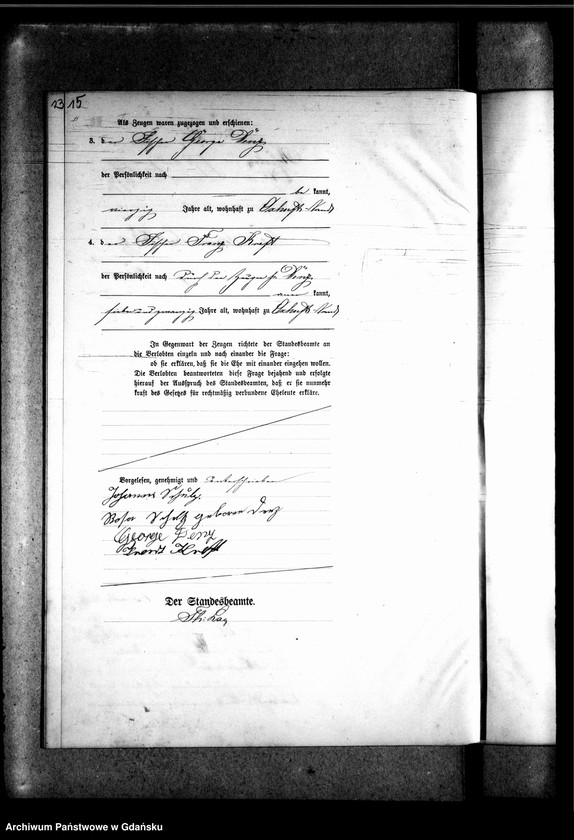 13 15
Als Zeugen waren zugezogen und erschienen:
3. der Fischer George Denz
der Persönlichkeit nach
be kannt,
vierzig Jahre alt, wohnhaft zu
4. der Fischer Franz Kreft
der Persönlichkeit nach durch den Zeugen p. Denz
aner kannt,
siebenundzwanzig Jahre alt, wohnhaft zu
In Gegenwart der Zeugen richtete der Standesbeamte an
die Verlobten einzeln und nach einander die Frage:
ob sie erklären, daß sie die Ehe mit einander eingehen wollen.
Die Verlobten beantworteten diese Frage bejahend und erfolgte
hierauf der Ausspruch des Standesbeamten, daß er sie nunmehr
kraft des Gesetzes für rechtmäßig verbundene Eheleute erkläre.
Vorgelesen, genehmigt und unterschrieben
Johannes Schulz.
Rosa Schulz geboren Denz
George Denz
Kreft
Der Standesbeamte.
Archiwum Państwowe w Gdańsku